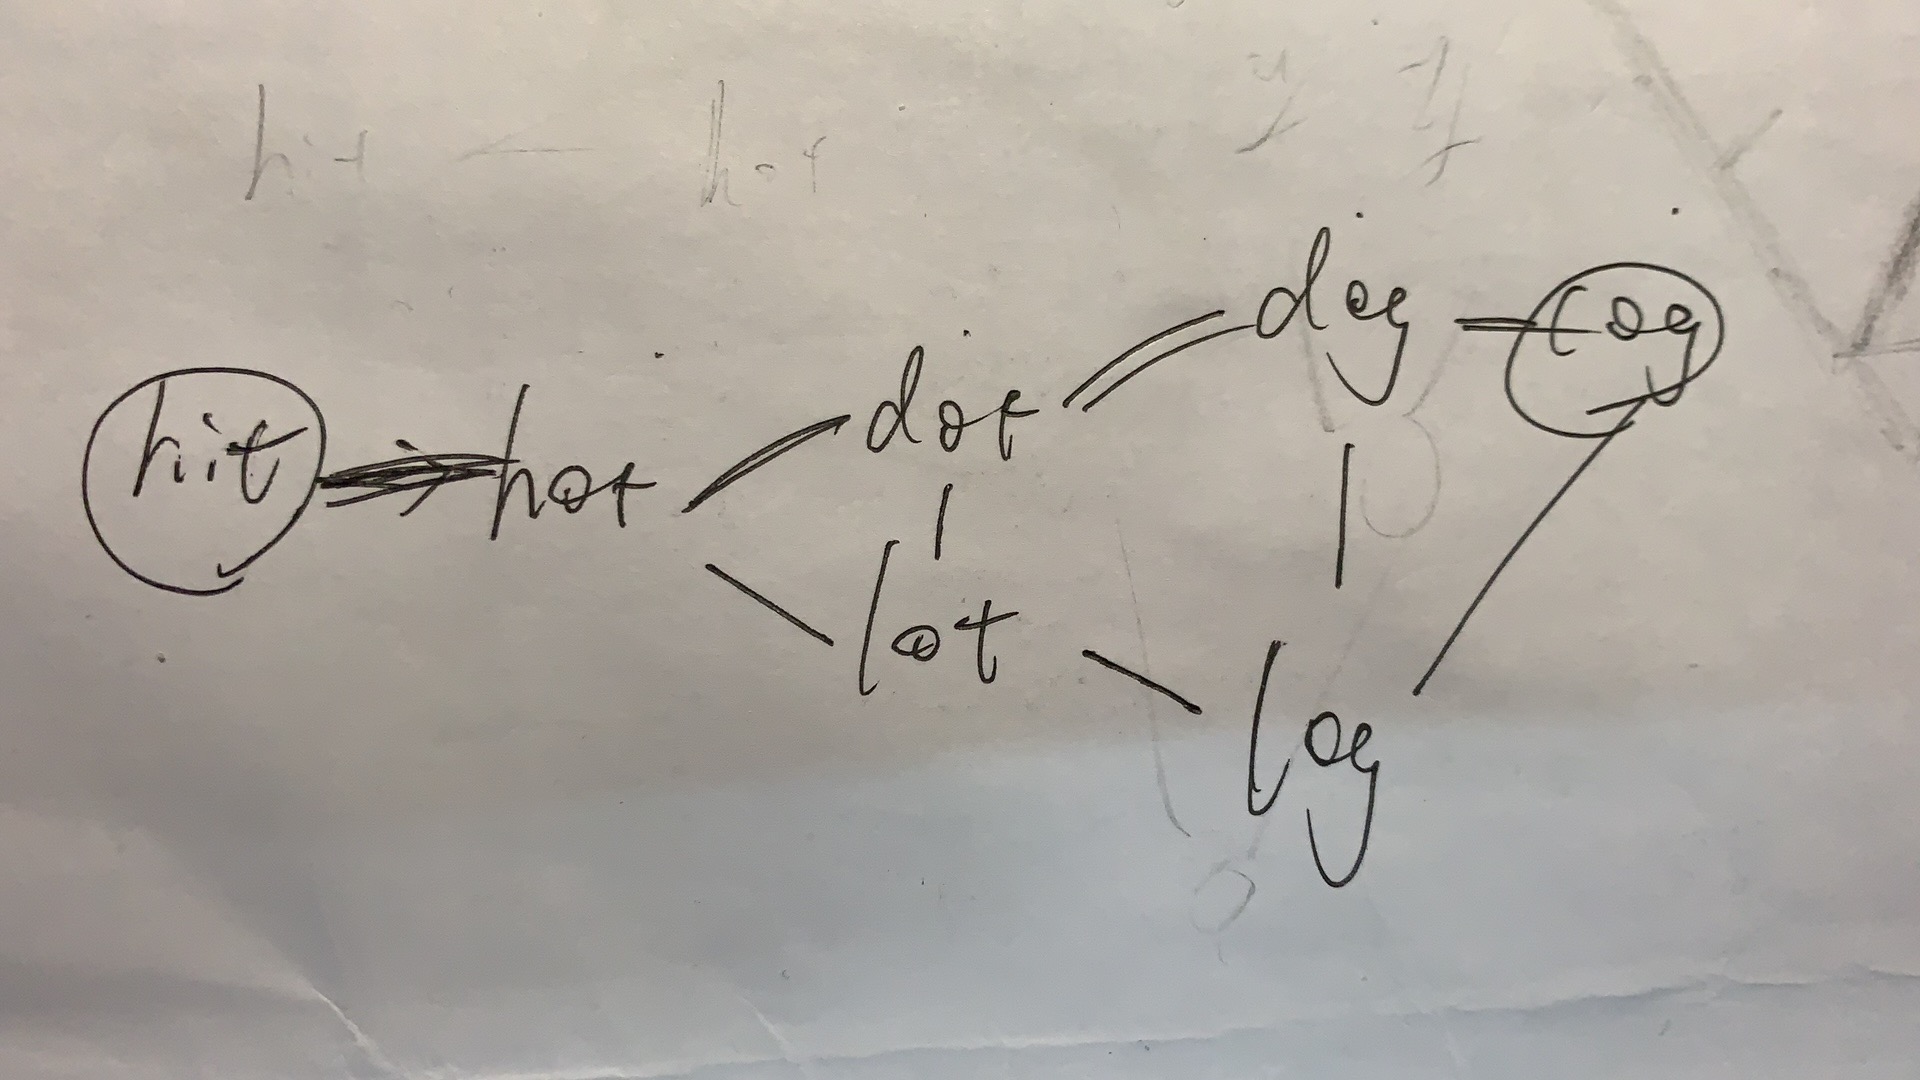 hit hot
hit hot dot dog cog
lot log